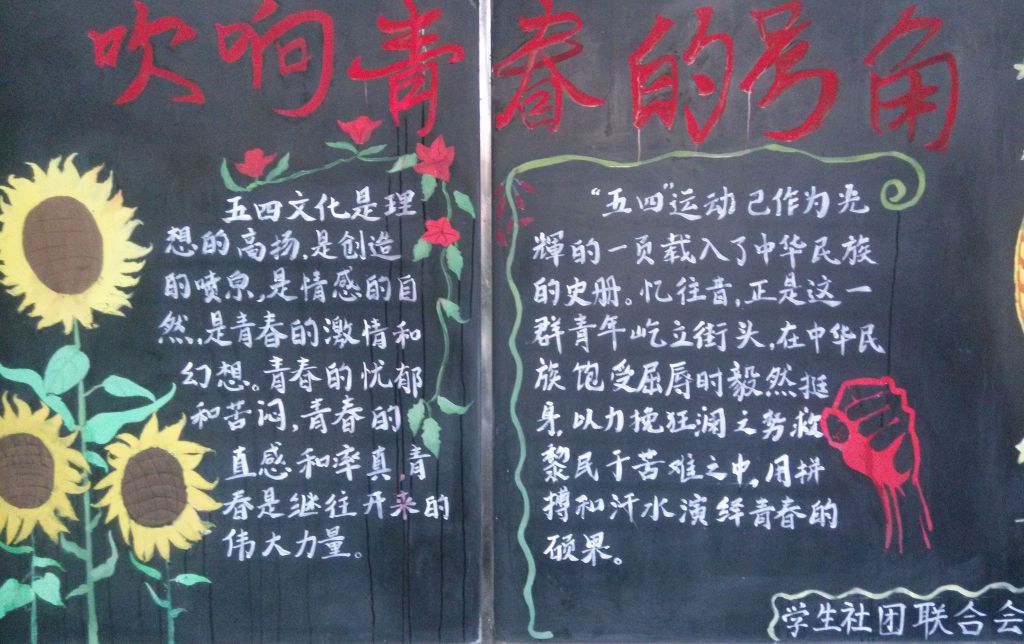 吹响青春的号角
五四文化是理
想的高扬,是创造
的喷泉,是情感的自
然,是青春的激情和
幻想。青春的忧郁
和苦闷,青春的
直感和率真,青
春是继往开来的
伟大力量。
“五四”运动已作为光
輝的一页载入了中华民族
的史册。忆往昔,正是这一
群青年屹立街头,在中华民
族饱受屈辱时毅然挺
身,以力挽狂澜之势救
黎民于苦难之中,用拼
搏和汗水演绎青春的
硕果。
学生社团联合会